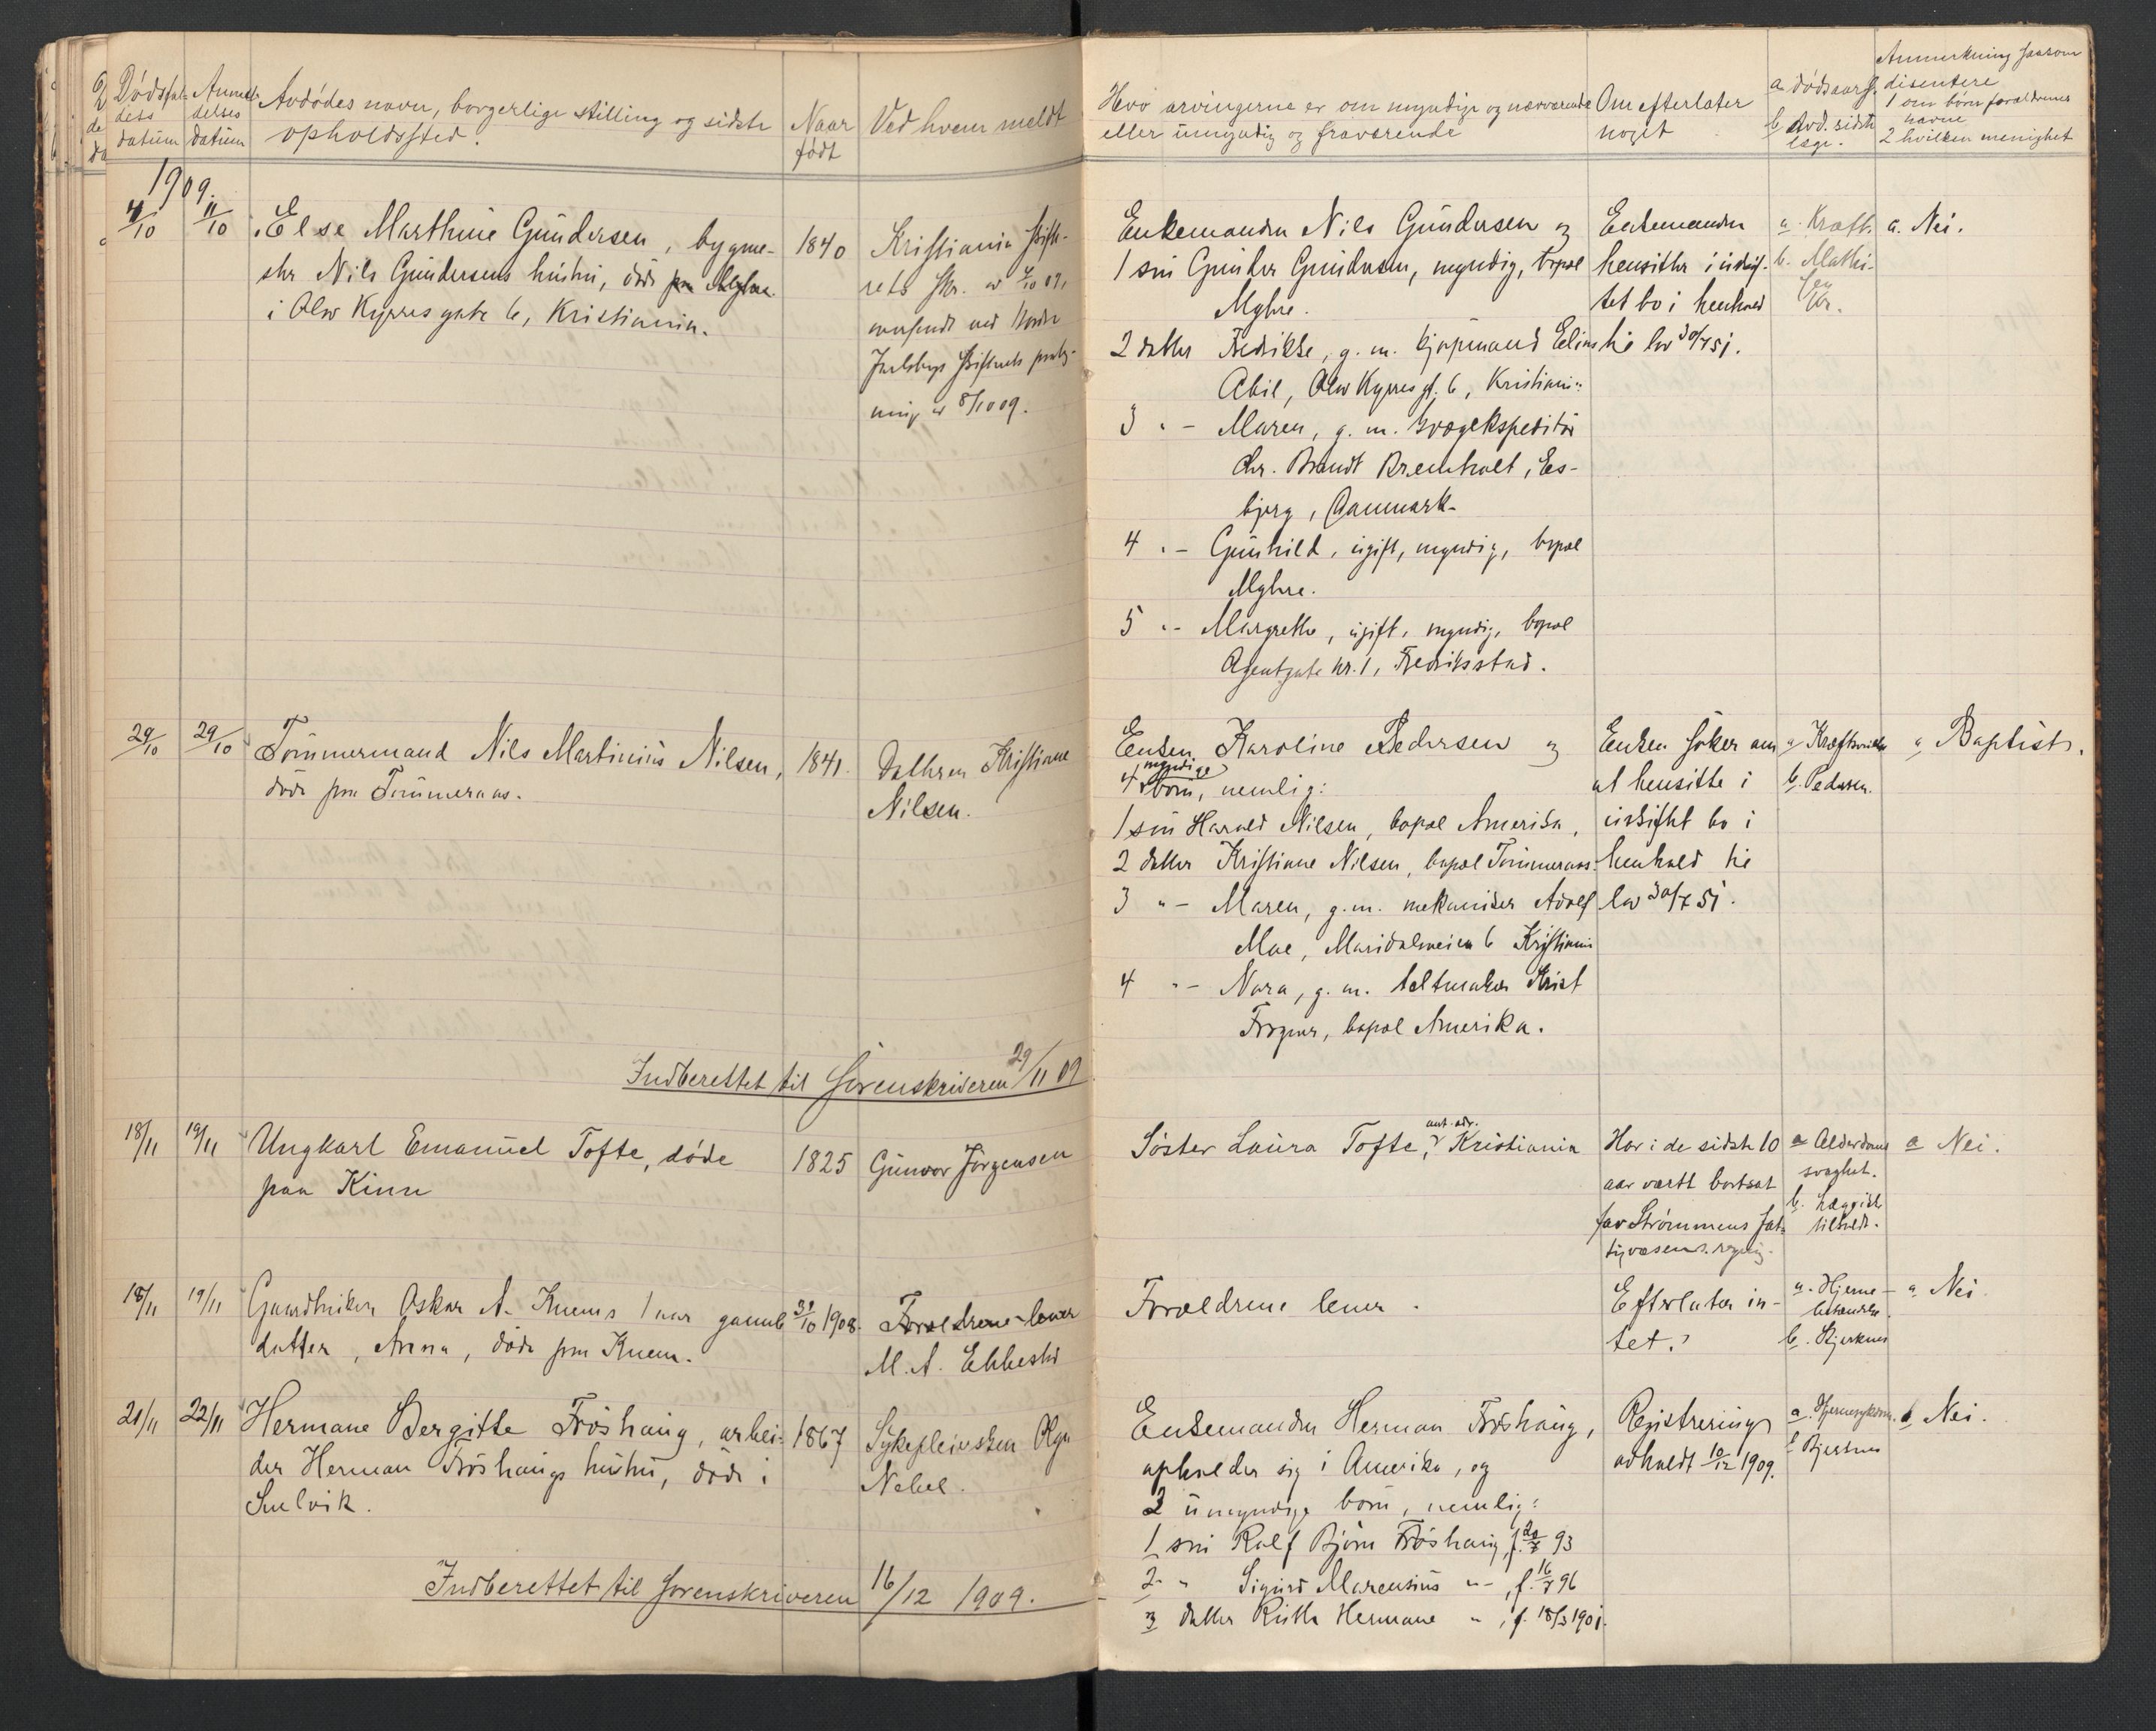 Dødsfal-
dets
datum
Anmel-
delses
datum
Avdødes navn, borgerlige stilling og sidste
opholdssted.
Naar
født
Ved hvem meldt
Hvo arvingerne er om myndige og nærværende
eller umyndig og fraværende
Om efterlater
noget
a. dødsaars.
b. Avd. sidste
læge.
Anmerkning saasom
disentere
1 om børn forældrenes
navne
2 hvilken menighet
1909.
4/10
11/10
Else Marthine Gundersen, bygme-
ster Nils Gundersens hustru, døde
i Olav Kyrres gate 6, Kristiania.
1840
Kristiania skifte-
rets skr. av
Jarlsbergs skifterets
8/10 09.
Enkemanden Nils Gundersen og
1 søn Gunder Gundersen, myndig, bopæl
Myhre.
2 datter Fredrikke, g. m. kjøpmand Elias
Abil, Olav Kyrres gt. 6, Kristiania
3 " - Maren, g. m.
Chr. Brandt Bremholt, Es-
bjerg, Danmark.
4 " - Gunhild, ugift, myndig, bopæl
Myhre.
5 " - Margrethe, ugift, myndig, bopæl
Agentgate nr. 1, Fredriksstad.
Enkemanden
hensitter i uskif-
tet bo i henhold
til lov 30/7 51.
a. Kræft.
b. Mathi-
sen
Kr.
a. Nei.
29/10
29/10
Tømmermand Nils Martinius Nilsen,
døde paa Tømmeraas.
1841.
Datteren Kristiane
Nilsen.
Enken Karoline Pedersen og
myndige
4 børn, nemlig:
1 søn Harald Nilsen, bopæl Amerika,
2 datter Kristiane Nilsen, bopæl Tømmeraas
3 " - Maren, g. m. mekaniker Adolf
Moe, Maridalsveien 6 Kristiania
4 " - Nora, g. m. teltmaker Krist
bopæl Amerika.
Enken søker om
at hensitte i
uskiftet bo i
henhold til
lov 30/7 51.
a.
b. Pedersen.
a. Baptist.
Indberettet til sorenskriveren 29/11 09
18/11
19/11
Ungkarl Emanuel Tofte, døde
paa Kinn
1825
Gunvor Jørgensen
Søster Laura Tofte, Kristiania
Har i de sidste 10
aar været bortsat
for Strømmens fat-
tigvæsens regning.
a Alderdoms
svaghet.
b. Lægeikke
tilkaldt.
a Nei.
18/11
19/11
Gaardbruker Oskar A. Knems 1 aar gamle
datter, Anna, døde paa Knem.
31/10 1908.
Forældrene lever
M. A. Ebbestad
Forældrene lever.
Efterlater in-
tet.
a. Hjerne-
betændelse
b. Bjerknes
a. Nei
21/11
22/11
Hermane Bergitte Frøshaug, arbei-
der Herman Frøshaugs hustru, døde i
Svelvik.
1867
Sykepleiersken Olga
Nebel.
Enkemanden Herman Frøshaug,
opholder sig i Amerika, og
3 umyndige børn, nemlig:
1 søn Ralf Bjørn Frøshaug, f. 20/7 93
2 " Sigurd Marensius " -, f. 16/7 96
3 datter Ruth Hermane " , f. 18/3 1901.
Registrering
avholdt 10/12 1909.
a. Hjernesykdom.
b Bjerknes
a. Nei.
Indberettet til sorenskriveren 16/12 1909.